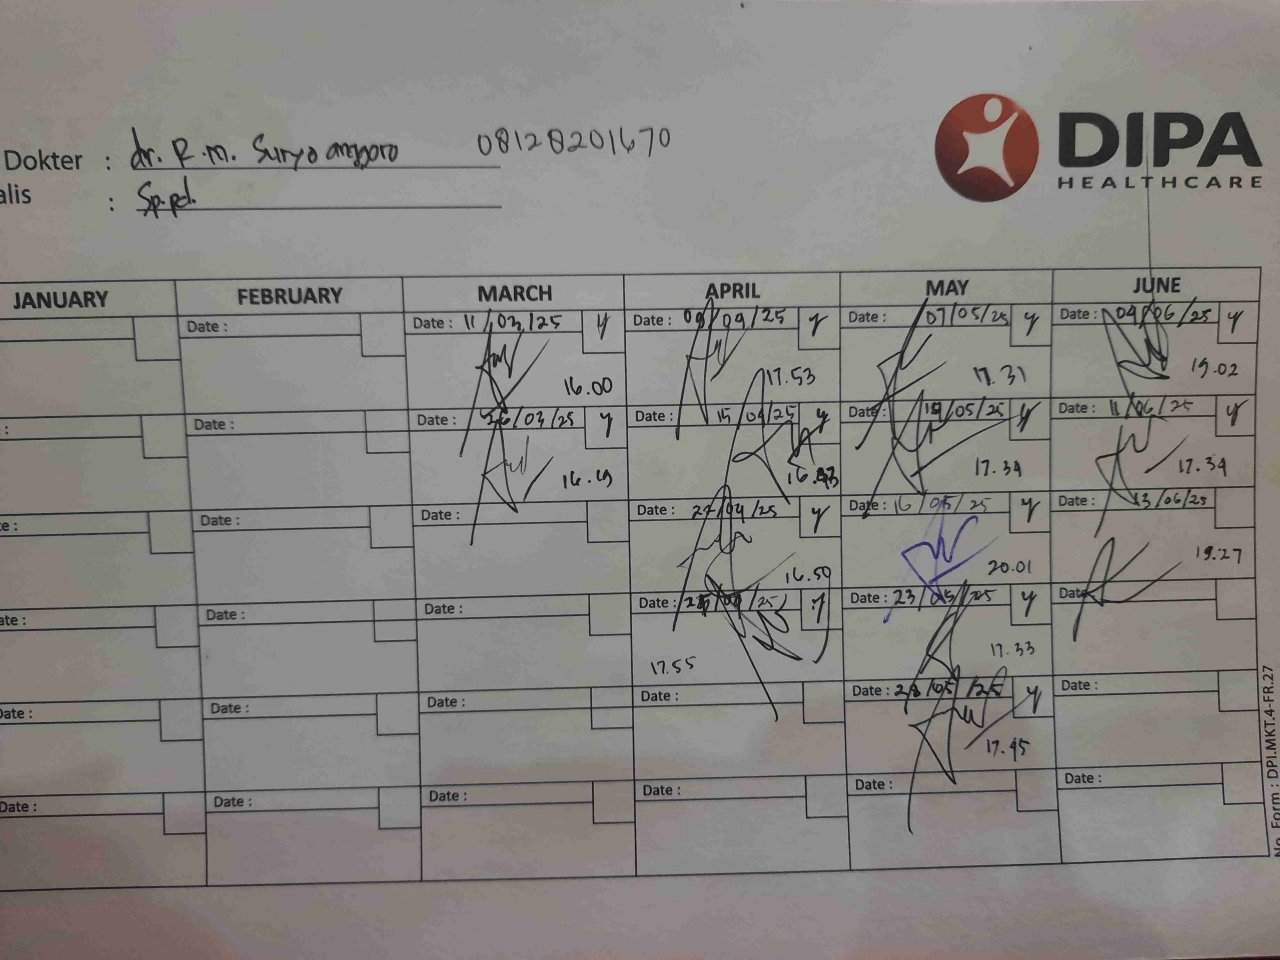 DIPA
HEALTHCARE
Dokter : dr. R.M. Suryo anggoro 08128201670
alis : Sp.pd.
JANUARY FEBRUARY MARCH APRIL MAY JUNE
Date : Date : 11/03/25 y Date : 09/04/25 y Date : 07/05/25 y Date : 04/06/25 y
16.00 17.53 17.31 19.02
: Date : Date : 26/03/25 y Date : 15/04/25 y Date : /05/25 y Date : 11/06/25 y
16.49 17.34 17.34
te : Date : Date : Date : 22/04/25 y Date : 16/05/25 y Date : 13/06/25
16.50 20.01 19.27
ate : Date : Date : Date : /25 y Date : 23/05/25 y Date :
17.55 17.33
Date : Date : Date : Date : Date : 28/05/25 y Date :
17.45
Date : Date : Date : Date : Date : Date :
No. Form : DPI.MKT.4-FR.27